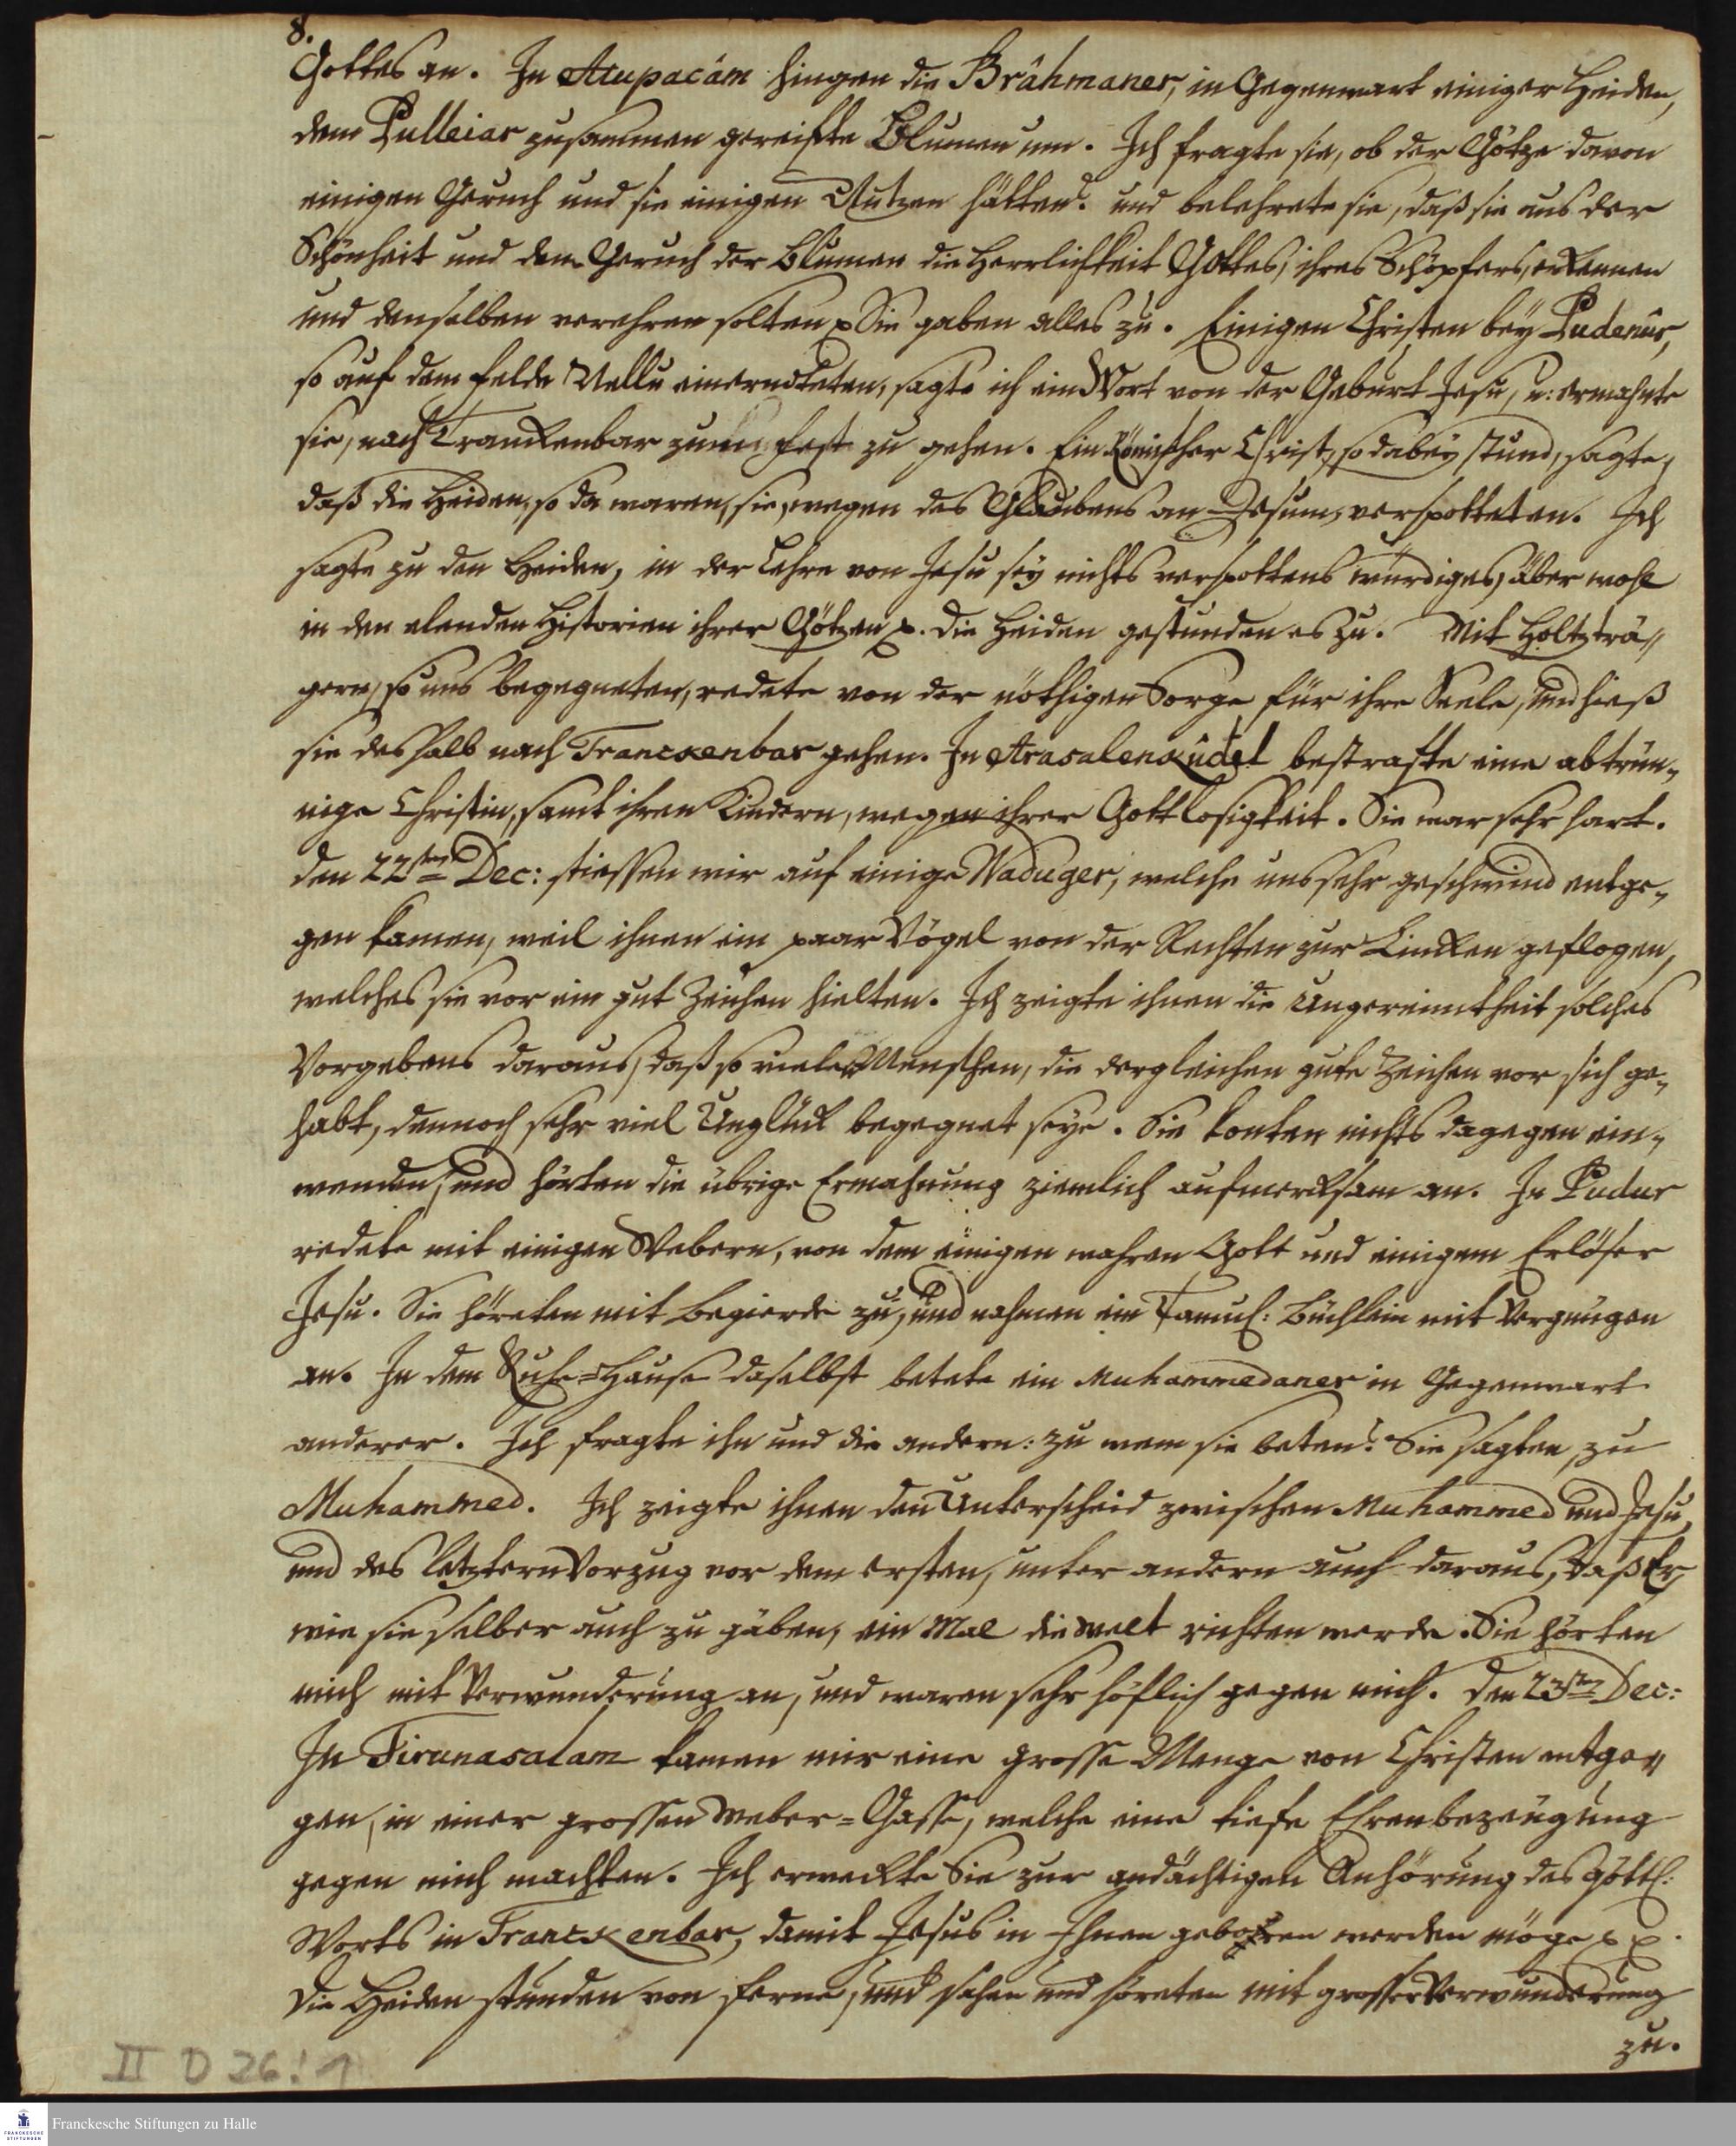 8.
Gottes an. In Atupacám hingen die Brâhmaner, in Gegenwart einiger Heiden,
dem Pulleiar zusammen gereihte Blumen um. Ich fragte sie, ob der Götze davon
einigen Geruch und sie einigen Nutzen hätten? und belehrete sie, daß sie aus der
Schönheit und dem Geruch der Blumen die Herrlichkeit Gottes, ihres Schöpfers, erkennen
und denselben verehren solten p Sie gaben alles zu. Einigen Christen bey Pudenûr,
so auf dem Felde Nellu einerndteten, sagte ich ein Wort von der Geburt Jesu, u: ermahnte
sie, nach Tranckenbar zum Fest zu gehen. Ein Römischer Christ, so dabey stund, sagte,
daß die Heiden, so da waren, sie, wegen des Glaubens an Jesum, verspotteten. Ich
sagte zu den Heiden, in der Lehre von Jesu sey nichts verspottens würdiges, aber wohl
in den elenden Historien ihrer Götzen p. Die Heiden gestunden es zu. Mit Holtzträ„
gern, so uns begegneten, redete von der nöthigen Sorge für ihre Seele, und hieß
sie deshalb nach Tranckenbar gehen. In Arasalenkûdel bestrafte eine abtrün„
nige Christin, samt ihren Kindern, wegen ihrer Gottlosigkeit. Sie war sehr hart.
den 22sten Dec: stiessen wir auf einige Waduger, welche uns sehr geschwind entge„
gen kamen, weil ihnen ein paar Vögel von der Rechten zur Lincken geflogen,
welches sie vor ein gut Zeichen hielten. Ich zeigte ihnen die Ungereimtheit solches
Vorgebens daraus, daß so vielen Menschen, die dergleichen gute Zeichen vor sich ge„
habt, dennoch sehr viel Unglück begegnet seye. Sie konten nichts dagegen ein„
wenden, und hörten die übrige Ermahnung ziemlich aufmercksam an. In Pudur
redete mit einigen Webern, von dem einigen wahren Gott und einigem Erlöser
Jesu. Sie höreten mit Begierde zu, und nahmen ein Tamul: Büchlein mit Vergnügen
an. In dem Ruhe=Hause daselbst betete ein Muhammedaner in Gegenwart
anderer. Ich fragte ihn und die andern: zu wem sie beten? Sie sagten, zu
Muhammed. Ich zeigte ihnen den Unterscheid zwischen Muhammed und Jesu,
und des letztern Vorzug vor dem ersten, unter andern auch daraus, daß Er,
wie sie selber auch zu gäben, ein Mal die Welt richten werde. Sie hörten
mich mit Verwunderung an, und waren sehr höflich gegen mich. Den 23sten Dec:
In Tirunasalam kamen mir eine grosse Menge von Christen entge„
gen, in einer grossen Weber=Gasse, welche eine tiefe Ehrenbezeugung
gegen mich machten. Ich erweckte Sie zur andächtigen Anhörung des Göttl:
Worts in Tranckenbar, damit Jesus in Ihnen geboren werden möge p p.
Die Heiden stunden von ferne, und sahen und höreten mit grosser Verwunderung
zu.
II D 26:1
Franckesche Stiftungen zu Halle
FRANCKESCHE
STIFTUNGEN